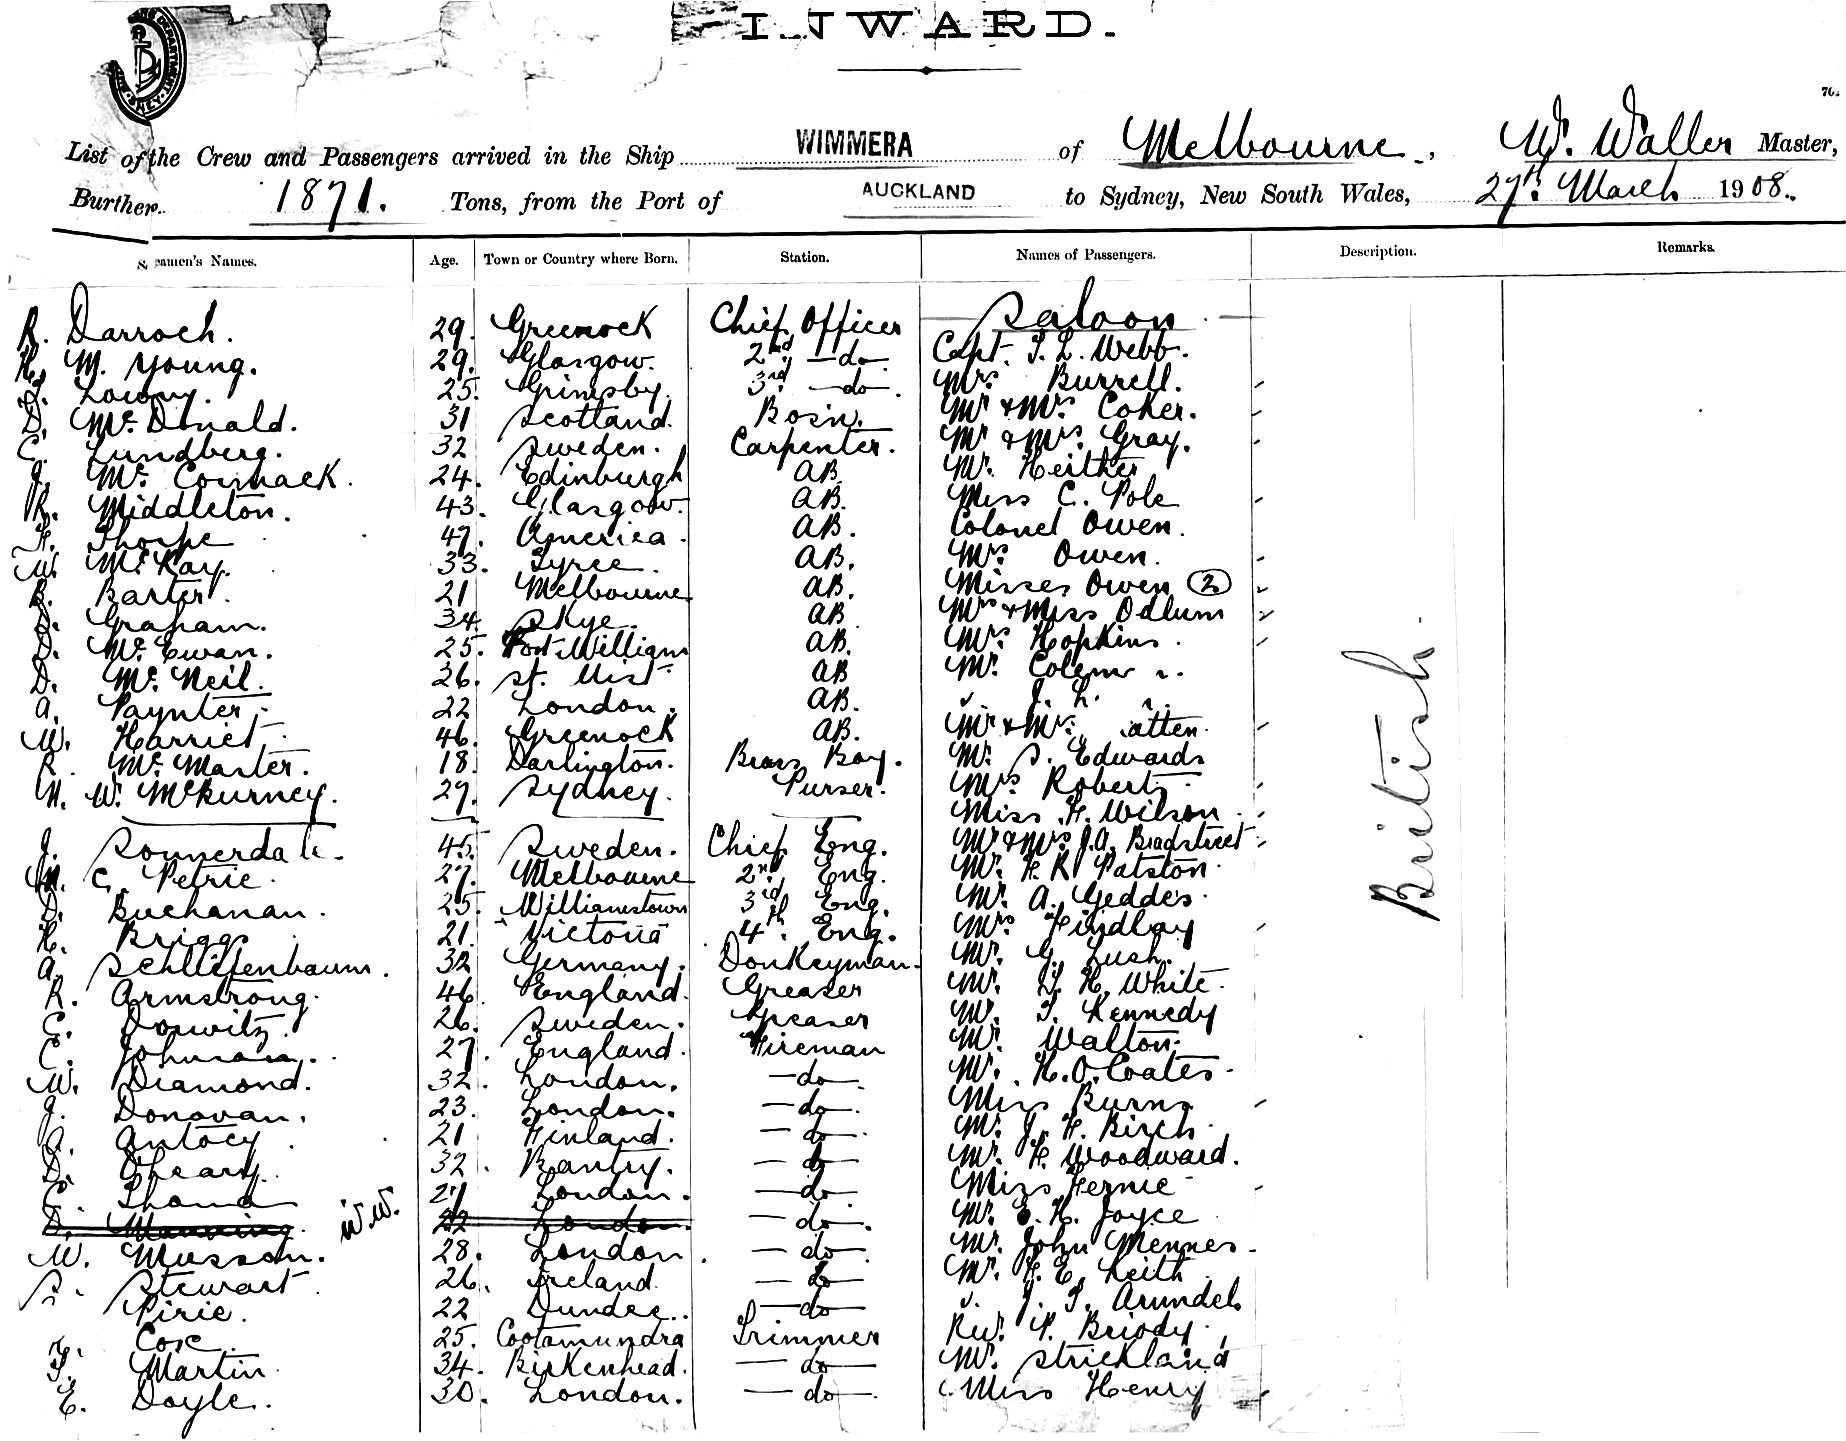 INWARD.
List of the Crew and Passengers arrived in the Ship WIMMERA of Melbourne, W. Waller Master,
Burthen 1871. Tons, from the Port of AUCKLAND to Sydney, New South Wales, 27th March 1908.
Seamen's Names. Age. Town or Country where Born. Station. Names of Passengers. Description. Remarks.
Saloon
R. Darroch. 29. Greenock Chief Officer Capt. T. L. Webb.
H. M. Young. 29. Glasgow. 2nd —do— Mrs Burrell.
Lowry. 25. Grimsby. 3rd —do— Mr & Mrs Coker.
D. McDonald. 31 Scotland. Bosn. Mr & Mrs Gray.
C. Lundberg. 32 Sweden. Carpenter. Mr. Heither
J. McCormack. 24. Edinburgh AB. Miss C. Pole
R. Middleton. 43. Glasgow. AB. Colonel Owen.
Thorpe 47. America. AB. Mrs Owen.
W. McKay. 33. Tyree. AB. Misses Owen (2)
B. Barter. 21 Melbourne AB. Mrs & Miss Odlum
D. Graham. 34. Skye. AB Mrs Hopkins.
D. McEwan. 25. Fort William AB. Mr.
D. McNeil. 26. St. Uist AB J. L.
A. Paynter. 22 London. AB. Mr & Mrs atten.
W. Harriet. 46. Greenock AB. Mr. S. Edwards
R. McMaster. 18. Darlington. Brass Boy. Mrs Roberts
N. W. McKurney. 29. Sydney. Purser. Miss H. Wilson.
J. Sonnerdale. 45. Sweden. Chief Eng. Mr & Mrs J. A. Bradstreet
C. Petrie. 27. Melbourne 2nd Eng. Mr. H. R. Patston.
D. Buchanan. 25. Williamstown 3rd Eng. Mr. A. Geddes.
H. Briggs 21. Victoria 4th. Eng. Mrs Findlay
A. Schliefenbaum. 32 Germany. Donkeyman. Mr. G. Lush.
R. Armstrong. 46. England. Greaser Mr. T. H. White.
E. Dorwitz. 26. Sweden. Greaser Mr. T. Kennedy
C. Johnson. 27. England. Fireman Mr. Walton.
W. Diamond. 32. London. —do— Mr. H. O. Coates.
J. Donovan. 23. London. —do— Miss Burns
A. Antocy 21 Finland. —do— Mr. J. H. Birch.
D. O'Leary. 32. Bantry. —do— Mr. H. Woodward.
C. 27 London. —do— Miss Fernie
D. Manning. W.W. 22 London. —do— Mr. E. H. Joyce
W. Musson. 28. London. —do— Mr. John Mennes.
S. Stewart 26. Ireland. —do— Mr. H. E. Leith
Pirie. 22 Dundee. —do— J. T. Arundel
Cox 25. Cootamundra Trimmer Rev. P. Briody.
T. Martin 34. Birkenhead. —do— Mr. Strickland
E. Doyle. 30. London. —do— Miss Henry
British.